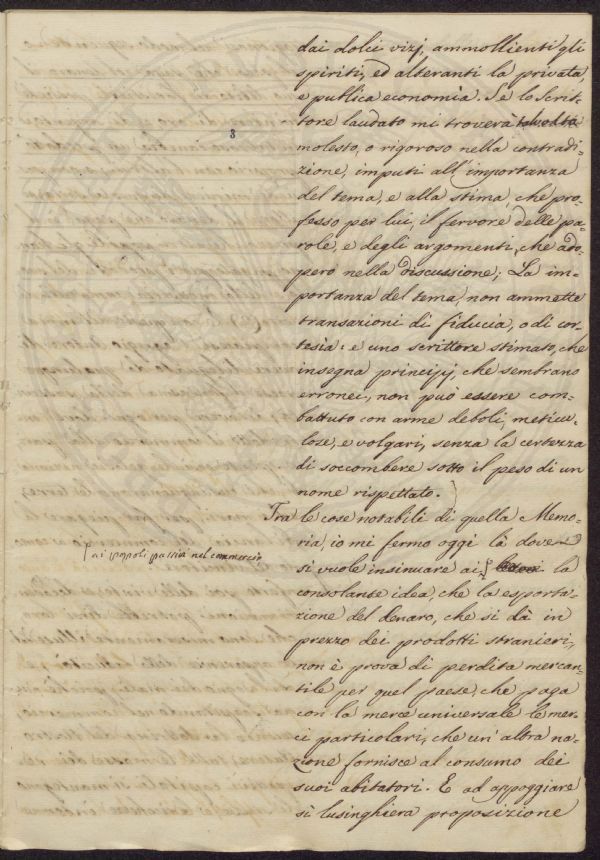 dai dolci vizj, ammollienti gli
spiriti, ed alteranti la privata,
e publica economia. Se lo Scrit-
tore laudato mi troverà talvolta
molesto, o rigoroso nella contradi-
zione, imputi all'importanza
del tema, e alla stima, che pro-
fesso per lui, il fervore delle pa-
role, e degli argomenti, che ado-
pero nella discussione; La im-
portanza del tema, non ammette
transazioni di fiducia, o di cor-
tesia: e uno scrittore stimato, che
insegna principj, che sembrano
erronei, non può essere com-
battuto con arme deboli, meticu-
lose, e volgari, senza la certezza
di soccombere sotto il peso di un
nome rispettato.
Tra le cose notabili di quella Memo-
ria, io mi fermo oggi là dove
si vuole insinuare ai la
ai popoli passivi nel commercio
consolante idea, che la esporta-
zione del denaro, che si dà in
prezzo dei prodotti stranieri,
non è prova di perdita mercan-
tile per quel paese, che paga
con la merce universale le mer-
ci particolari, che un'altra na-
zione fornisce al consumo dei
suoi abitatori. E ad appoggiare
sì lusinghiera proposizione
8